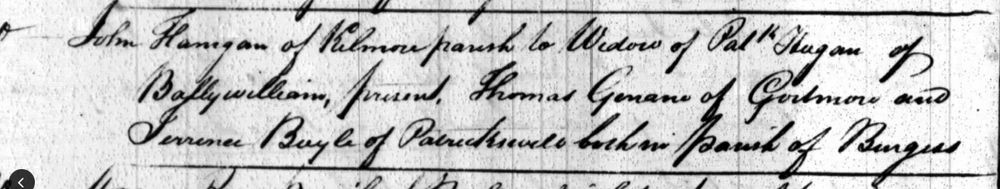 John Hanigan of Kilmore parish to Widow of Patk Hogan of
Ballywilliam, present, Thomas Genano of Gortmore and
Terrence Boyle of Patrickswell both in parish of Burgess